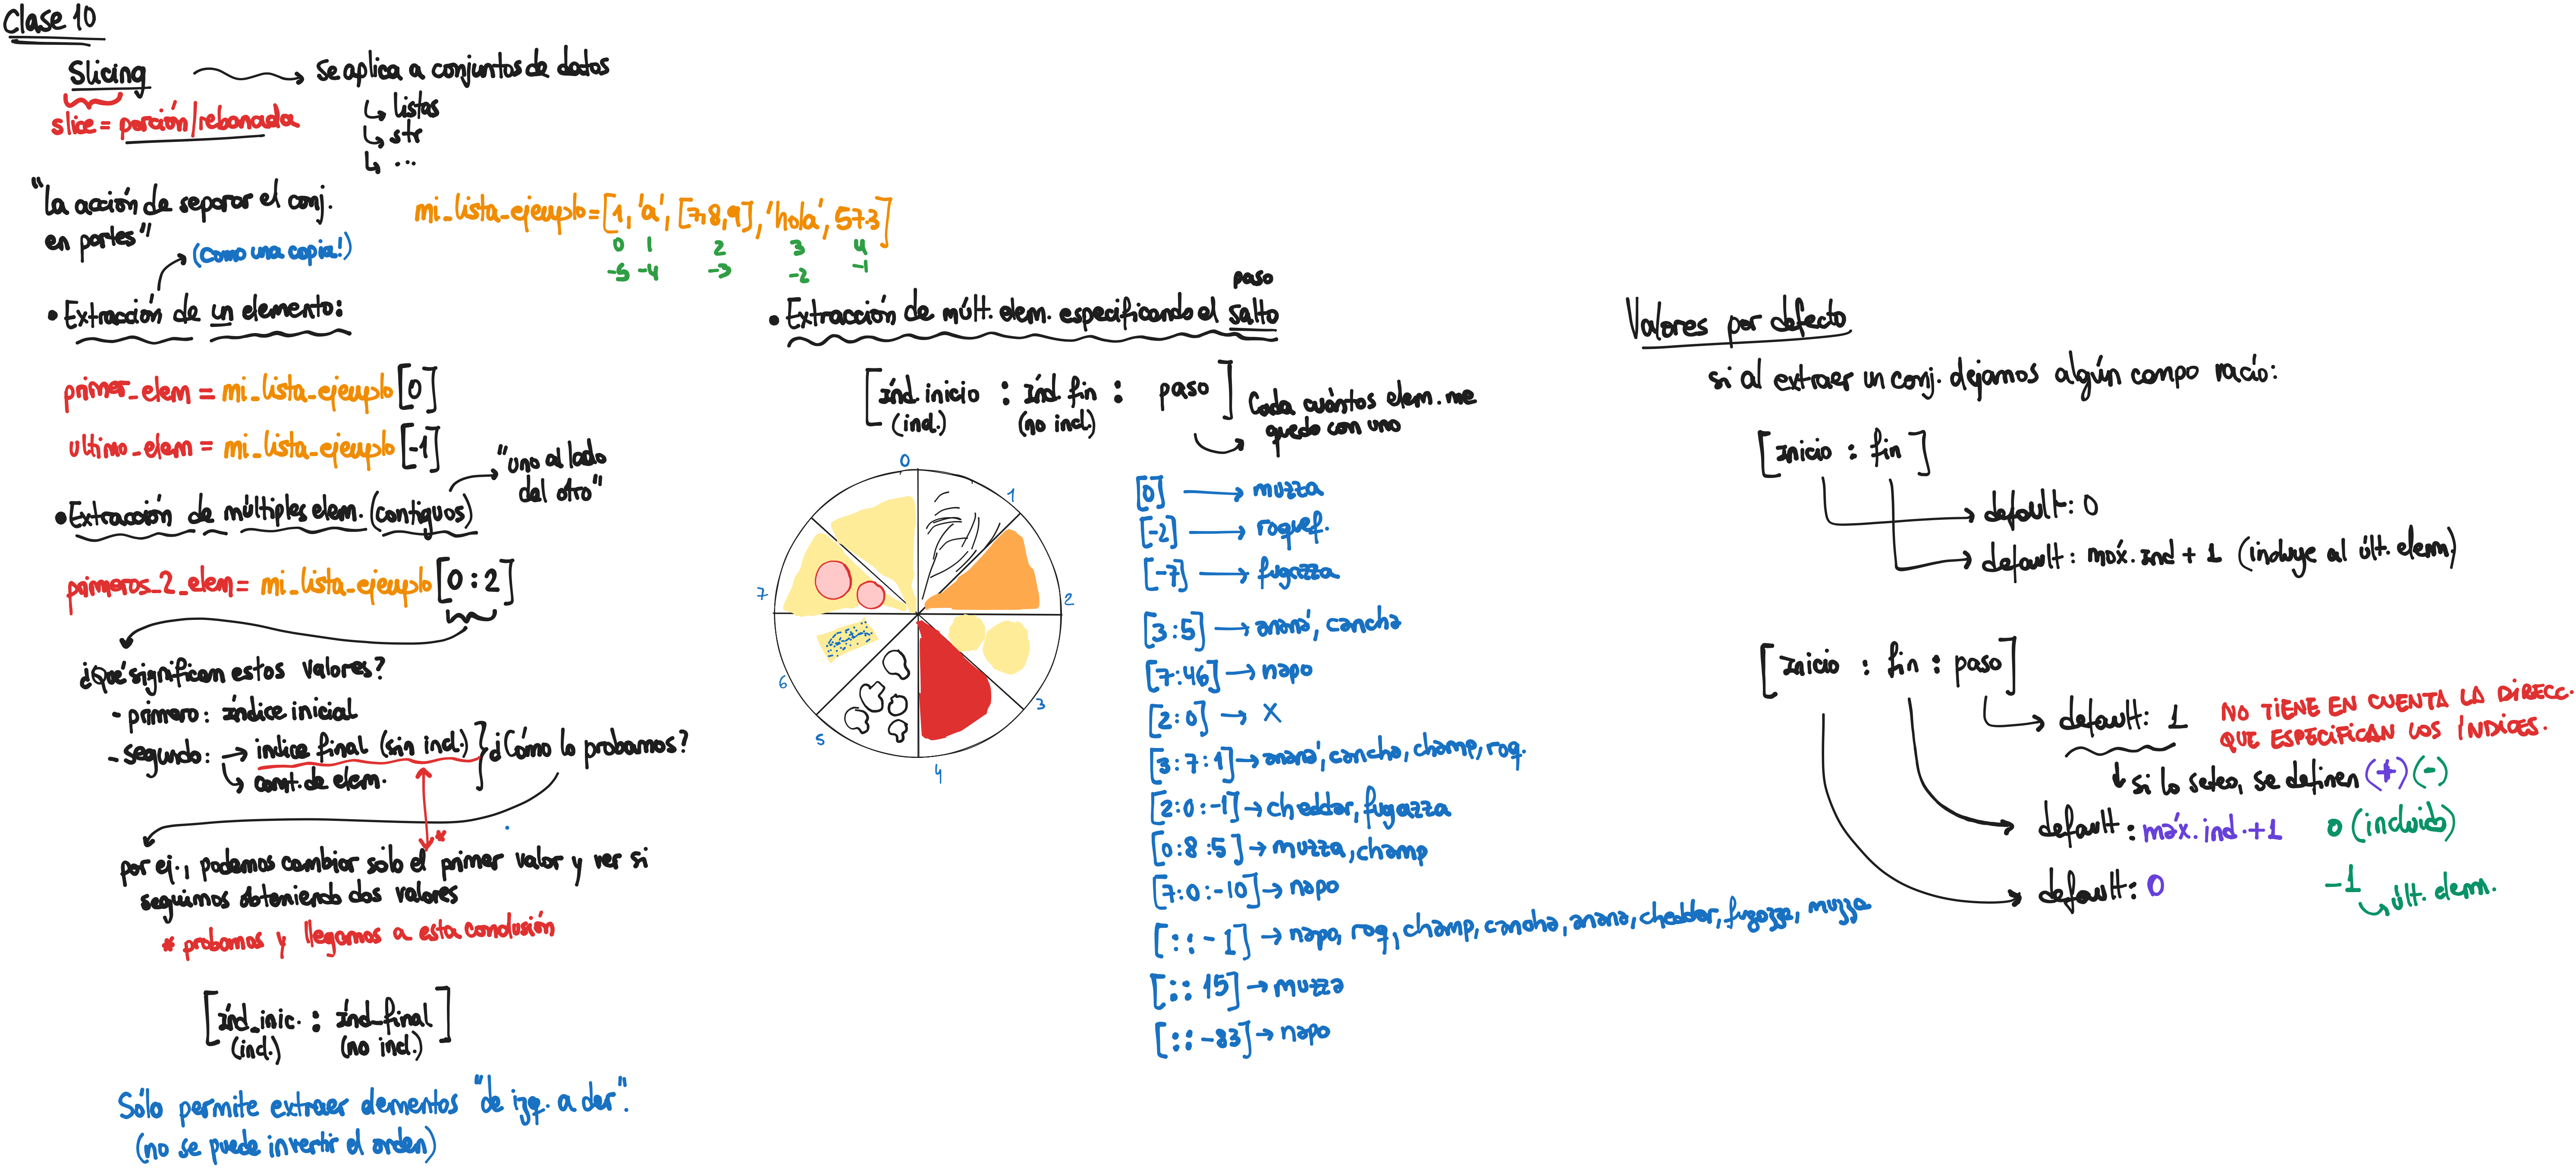 Clase 10
Slicing
Se aplica a conjuntos de datos
listas
str
...
slice = porción/rebanada
"la acción de separar el conj.
en partes"
(como una copia!)
mi_lista_ejemplo = [1, 'a', [7,8,9], 'hola', 57.3]
0 1 2 3 4
-5 -4 -3 -2 -1
• Extracción de un elemento:
primer_elem = mi_lista_ejemplo [0]
ultimo_elem = mi_lista_ejemplo [-1]
"uno al lado
del otro"
• Extracción de múltiples elem. (contiguos)
primeros_2_elem = mi_lista_ejemplo [0 : 2]
¿Qué significan estos valores?
- primero: índice inicial
- segundo: → indice final (sin incl.)
cant. de elem.
¿Cómo lo probamos?
*
por ej., podemos cambiar solo el primer valor y ver si
seguimos obteniendo dos valores
* probamos y llegamos a esta conclusión
[índ_inic. : índ_final]
(incl.) (no incl.)
Sólo permite extraer elementos "de izq. a der".
(no se puede invertir el orden)
paso
• Extracción de múlt. elem. especificando el salto
[índ. inicio : índ. fin : paso]
(incl.) (no incl.)
Cada cuántos elem. me
quedo con uno
0
1
2
3
4
5
6
7
[0] → muzza
[-2] → roquef.
[-7] → fugazza
[3:5] → ananá, cancha
[7:46] → napo
[2:0] → X
[3:7:1] → ananá, cancha, champ, roq.
[2:0:-1] → cheddar, fugazza
[0:8:5] → muzza, champ
[7:0:-10] → napo
[::-1] → napo, roq, champ, cancha, anana, cheddar, fugazza, muzza
[:: 15] → muzza
[:: -83] → napo
Valores por defecto
si al extraer un conj. dejamos algún campo vacío:
[Inicio : fin]
default: 0
default: máx. ind + 1 (incluye al últ. elem.)
[Inicio : fin : paso]
default: 1
NO TIENE EN CUENTA LA DIRECC.
QUE ESPECIFICAN LOS ÍNDICES.
si lo seteo, se definen (+) (-)
default: máx. ind. + 1 0 (incluido)
default: 0 -1
últ. elem.